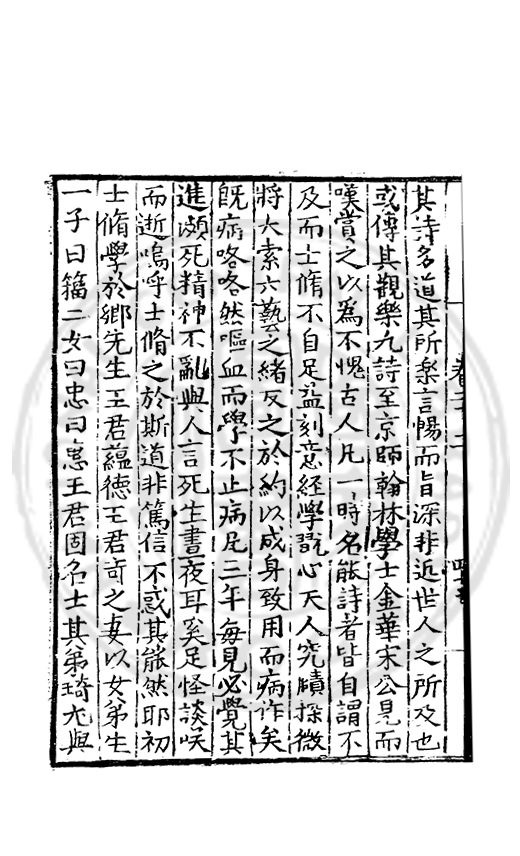 其詩多道其所樂言暢而旨深非近世人之所及也
或傳其觀樂九詩至京師翰林學士金華宋公見而
嘆賞之以為不愧古人凡一時名能詩者皆自謂不
及而士脩不自足益刻意經學翫心天人究賾探微
將大索六藝之緒反之於約以成身致用而病作矣
旣病咯咯然嘔血而學不止病凡三年每見必覺其
進頻死精神不亂與人言死生晝夜耳奚足怪談咲
而逝嗚呼士脩之於斯道非篤信不惑其能然耶初
士脩學於鄉先生王君蘊德王君奇之妻以女弟生
一子曰籀二女曰忠曰惠王君固名士其弟琦尤與